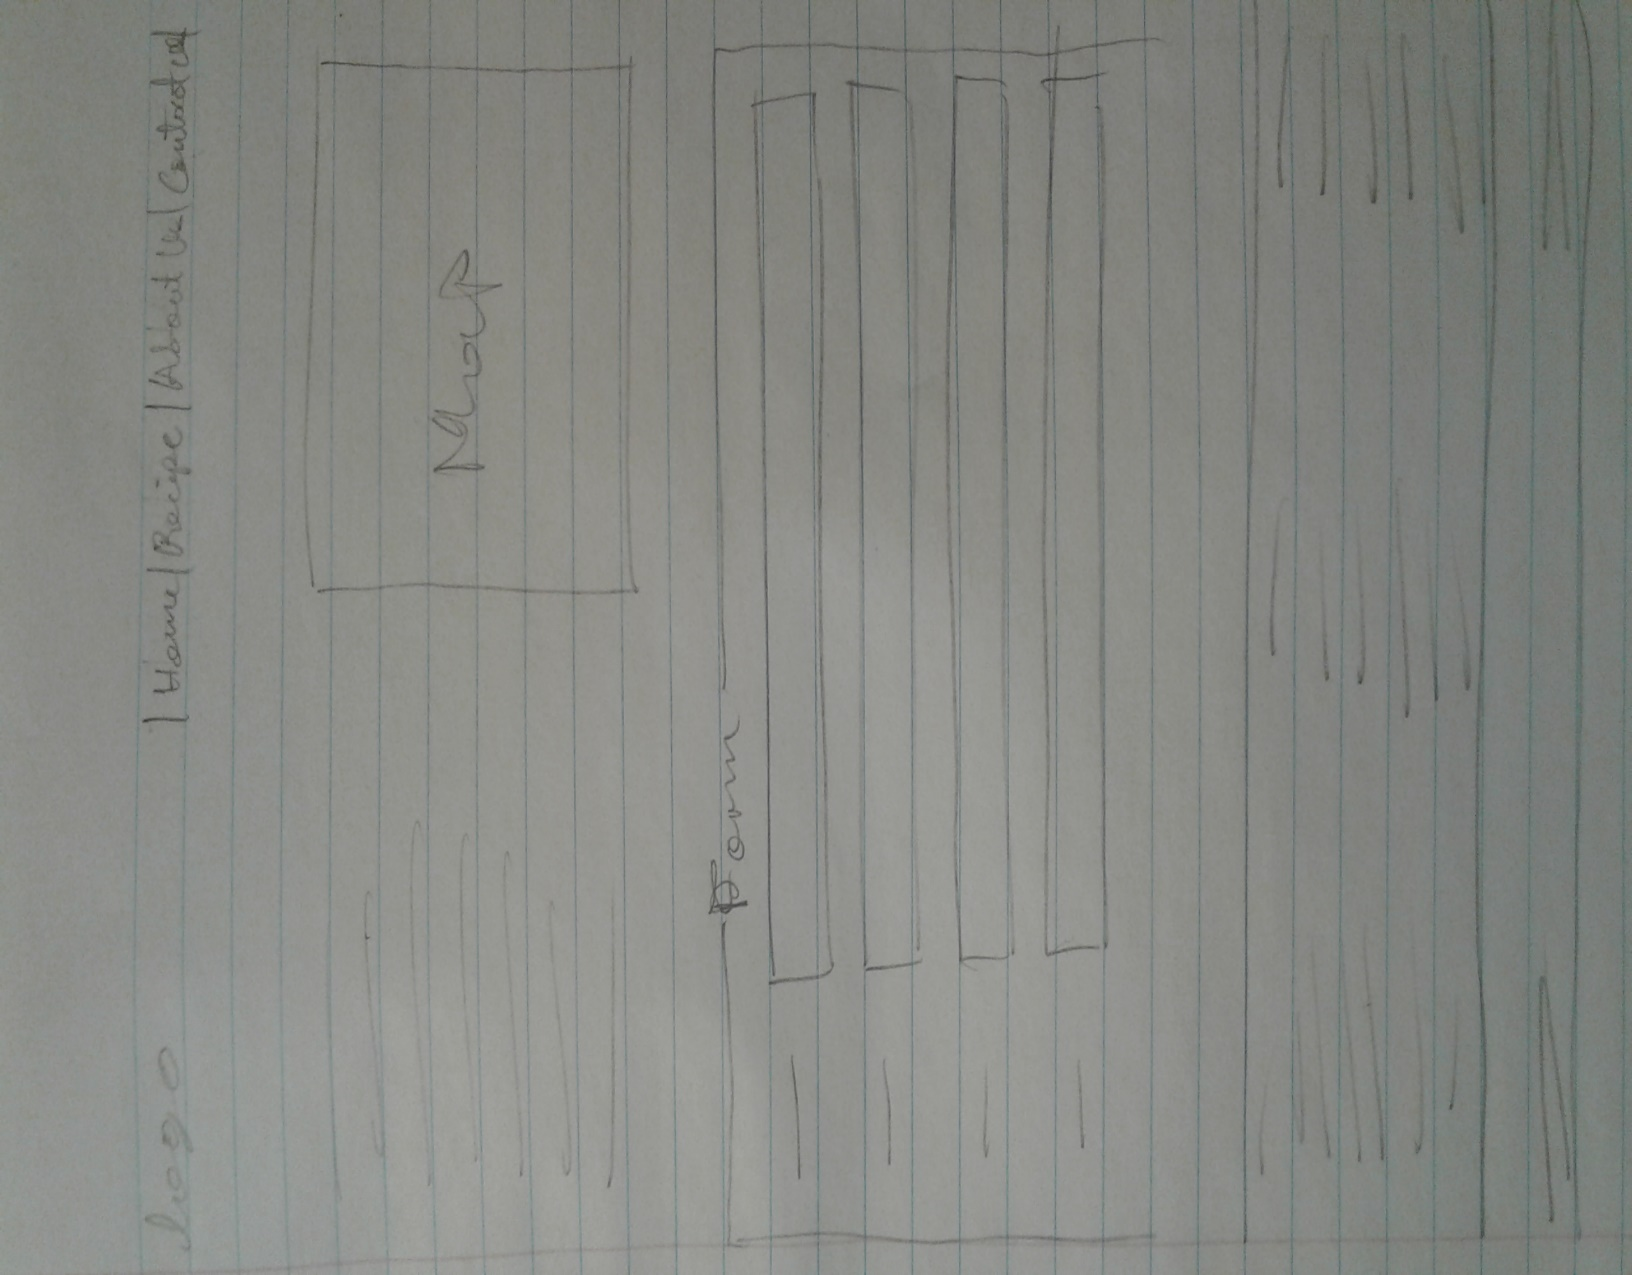 Logo | Home | Recipe | About Us | Contact us
Map
Form